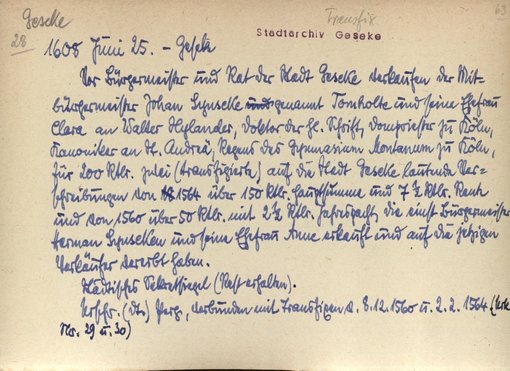 Geseke
28
Transfix
63
Stadtarchiv Geseke
1608 Juni 25. - Geseke
Vor Bürgermeister und Rat der Stadt Geseke verkaufen der Mit-
bürgermeister Johan genannt Tonholte und seine Ehefrau
Clara an Walter Hylander, Doktor der hl. Schrift, Dompriester zu Köln,
Kanoniker an St. Andreä, Regens des Gymnasium Montanum zu Köln,
für 200 Rtlr. zwei (transfigierte) auf die Stadt Geseke lautende Ver-
schreibungen von 1564 über 150 Rtlr. Hauptsumme und 7 ½ Rtlr. Rente
und von 1560 über 50 Rtlr. mit 2 ½ Rtlr. Jahrespacht, die einst Bürgermeister
Herman und seine Ehefrau Anne erkauft und auf die jetzigen
Verkäufer vererbt haben.
Städtisches Sekretsiegel (Rest erhalten).
Urschr. (dt.) Perg., verbunden mit Transfixen v. 8.12.1560 u. 2.2.1564 (Urk.
Nr. 29 u. 30)